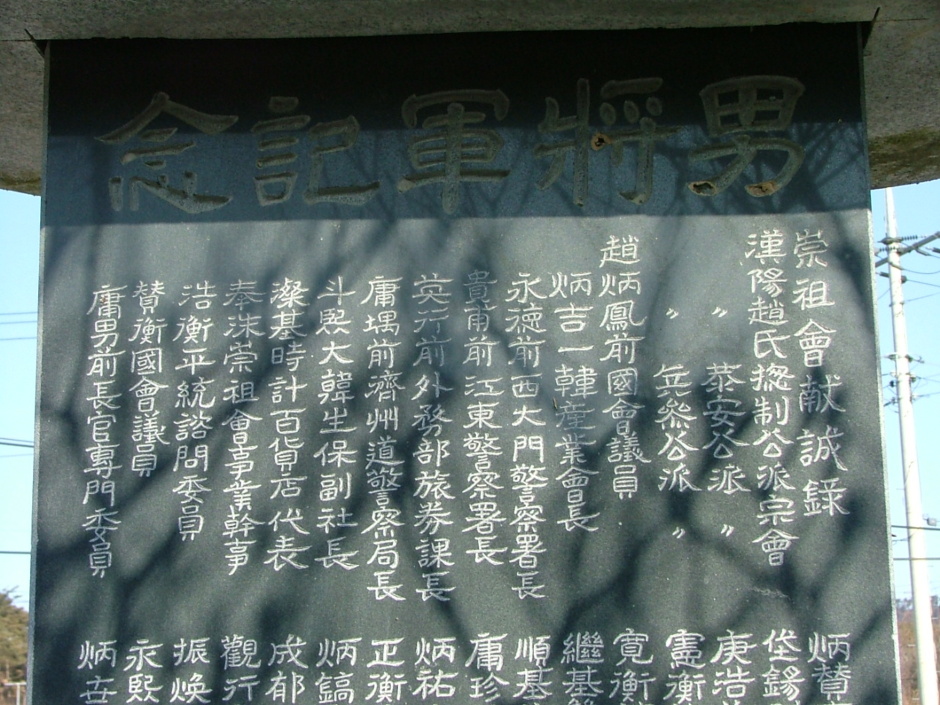 男將軍記念
崇祖會献誠錄
漢陽趙氏摠制公派宗會
〃 恭安公派 〃
〃 兵參公派 〃
趙炳鳳前國會議員
炳吉一韓産業會長
永德前西大門警察署長
貴甫前江東警察署長
英行前外務部旅券課長
庸堣前濟州道警察局長
斗熙大韓生保副社長
濚基時計百貨店代表
奉洙崇祖會事業幹事
浩衡平統諮問委員
贊衡國會議員
庸男前長官專門委員
炳贊
垈錫
庚浩
憲衡
寬衡
繼基
順基
庸珍
炳祐
正衡
炳鎬
成郁
觀行
振煥
永熙
炳